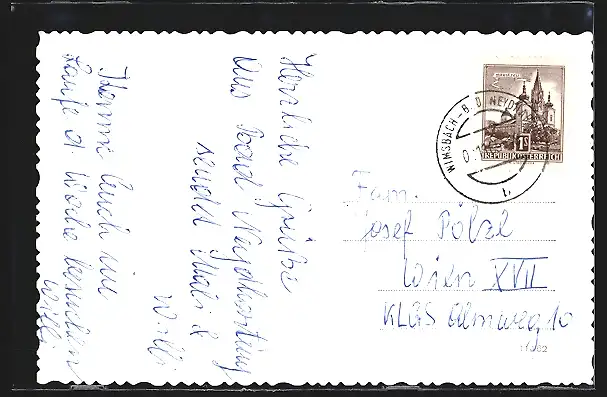 Herzliche Grüße
Aus Bad Neydharting
sendet Mali &
Willi
Komme Euch im
Laufe d. Woche besuchen
Willi
MARIAZELL
1S
REPUBLIK ÖSTERREICH
WIMSBACH-B
b
Fam.
Josef Pölzl
Wien XVII
KLGS Almweg 10